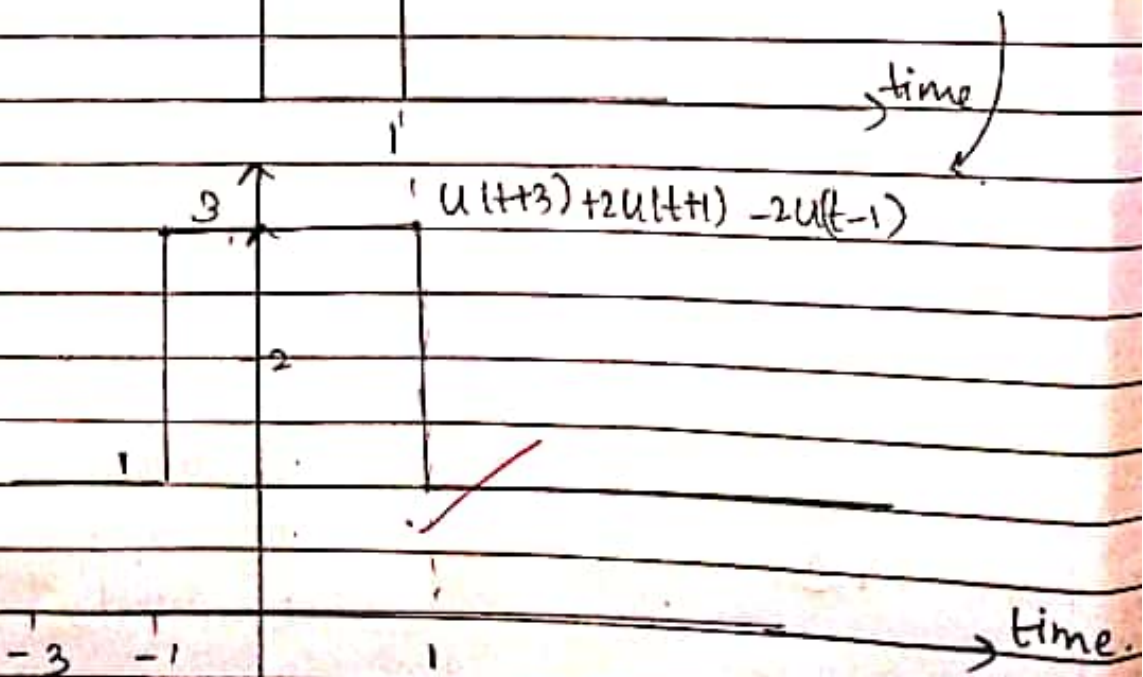 time
1
3
u(t+3) +2u(t+1) -2u(t-1)
2
1
-3 -1 1 time.